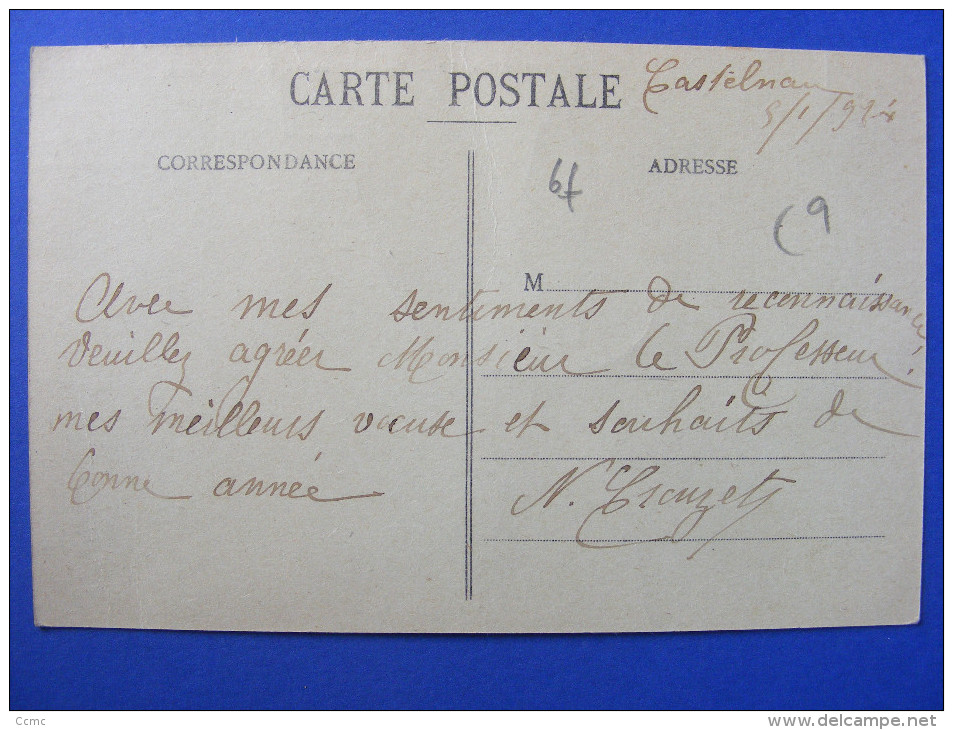 CARTE POSTALE
Castelnau
5/1/924
CORRESPONDANCE
ADRESSE
6f
C9
M
Avec mes sentiments de reconnaissance
Veuillez agréer Monsieur le Professeur
mes meilleurs voeuse et souhaits de
bonne année
N. Crouzet
Ccmc
www.delcampe.net